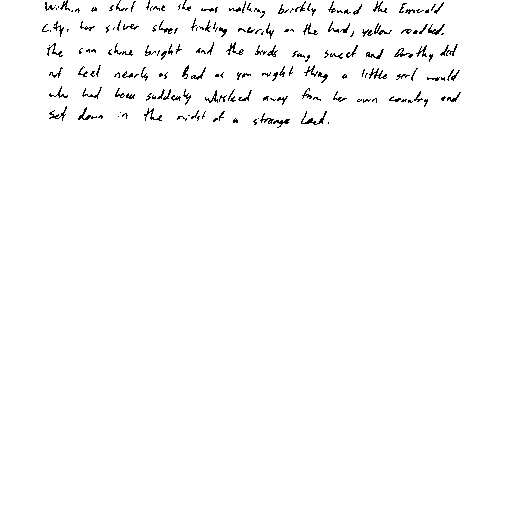 Within a short time she was walking briskly toward the Emerald
City, her silver shoes tinkling merrily on the hard, yellow roadbed.
The sun shone bright and the birds sang sweet and Dorothy did
not feel nearly as bad as you might thing a little girl would
who had been suddenly whisked away from her own country and
set down in the midst of a strange land.